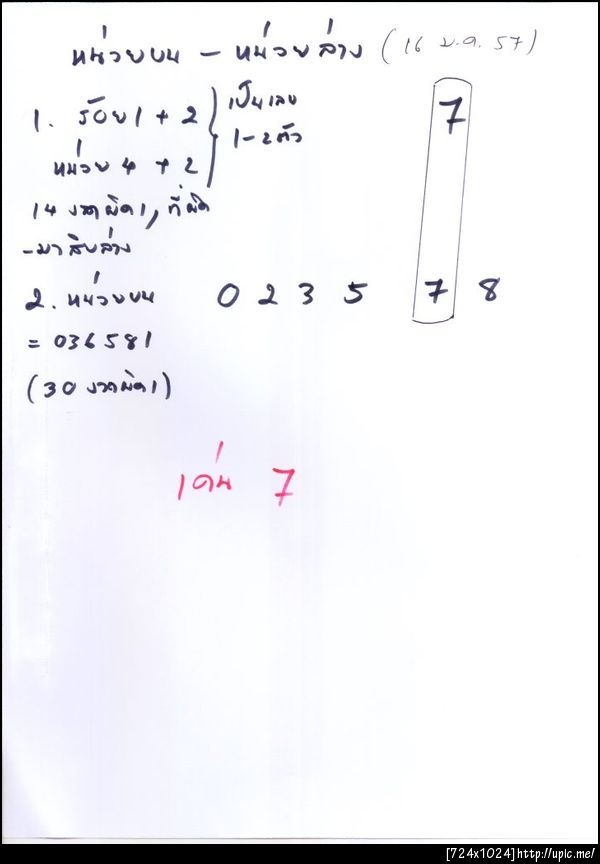 หน่วยบน - หน่วยล่าง (16 ม.ค. 57)
1. ร้อย 1 + 2 } เป็นเลข 7
หน่วย 4 + 2 } 1-2 ตัว
14 งวดผิด 1, ที่ผิด
-มาสิบล่าง
2. หน่วยบน 0 2 3 5 7 8
= 036581
(30 งวดผิด 1)
เด่น 7
[724x1024]http://upic.me/